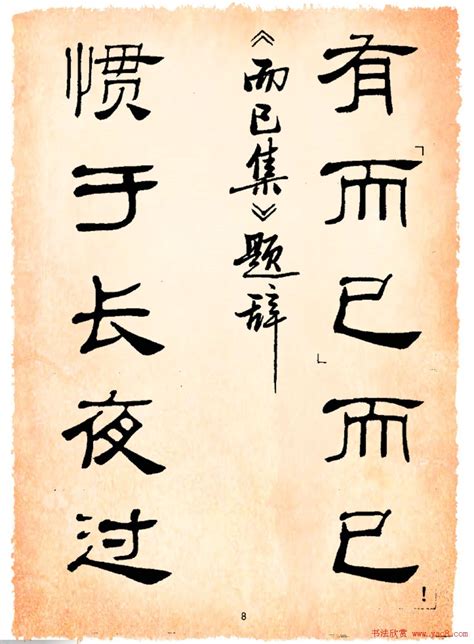 有「而已」而已！
《而已集》题辞
惯于长夜过
8
书法欣赏
www.yac8.com